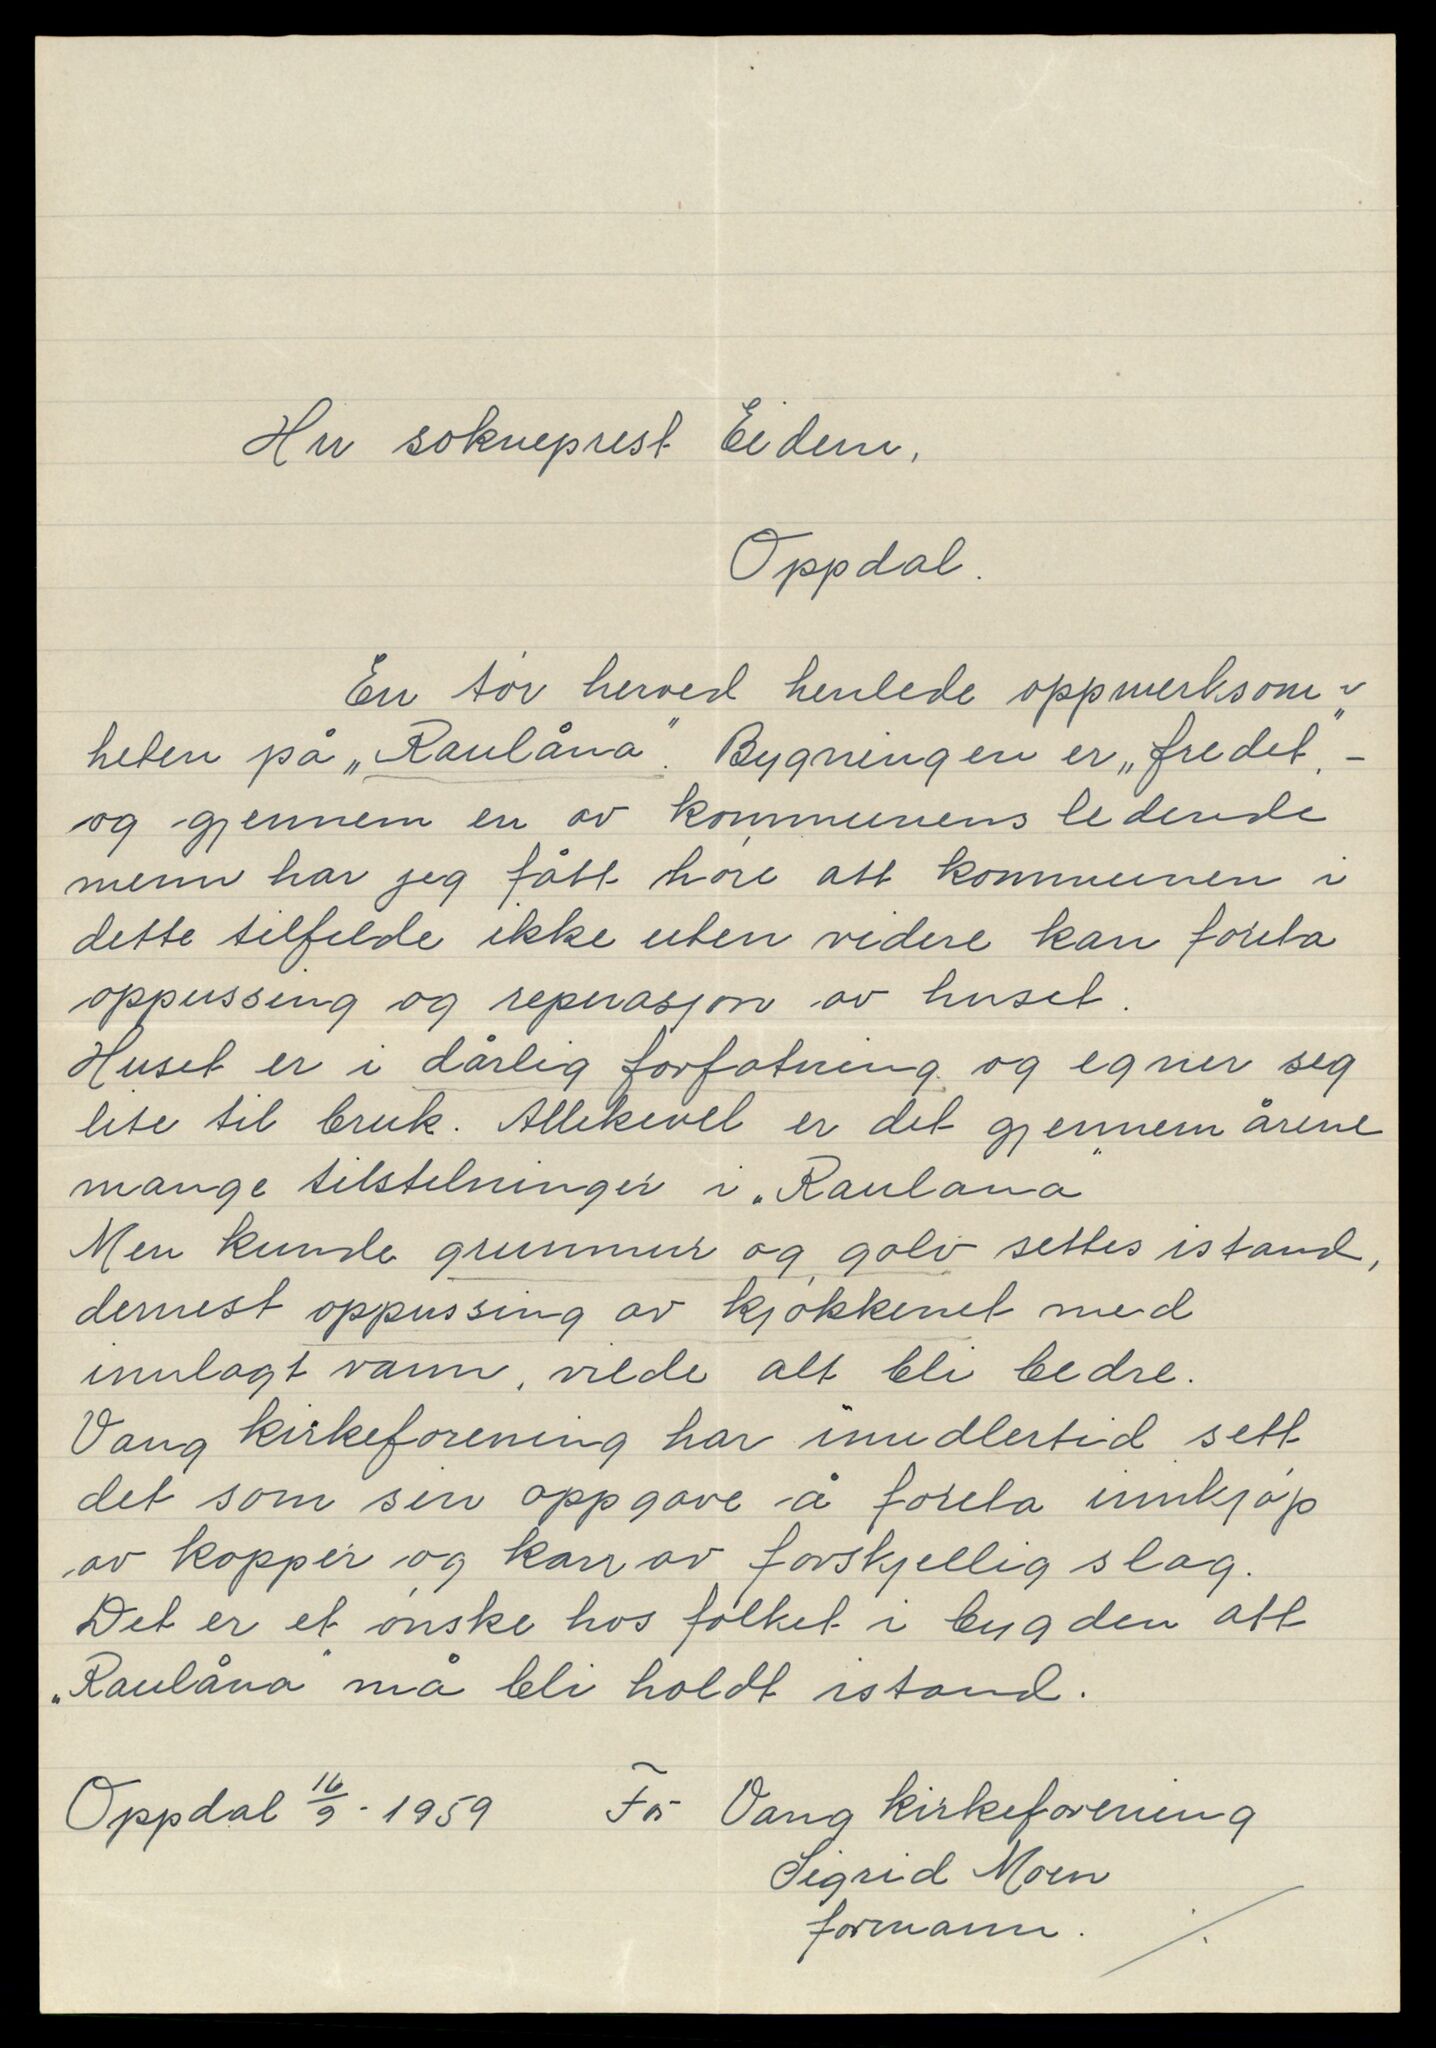 Hrr sokneprest Eidem,
Oppdal.
En tør herved henlede oppmerksom-
heten på „Raulåna". Bygningen er „fredet", -
og gjennem en av kommunens ledende
menn har jeg fått høre att kommunen i
dette tilfelde ikke uten videre kan foreta
oppussing og reperasjon av huset.
Huset er i dårlig forfatning og egner seg
lite til bruk. Allikevel er det gjennem årene
mange tilstelninger i „Raulana"
Men kunde grunnmur og golv settes istand,
dernest oppussing av kjøkkenet med
innlagt vann, vilde alt bli bedre.
Vang kirkeforening har imidlertid sett
det som sin oppgave å foreta innkjøp
av kopper og karr av forskjellig slag.
Det er et ønske hos folket i bygden att
„Raulåna" må bli holdt istand.
Oppdal 16/9 - 1959 For Vang kirkeforening
Sigrid Moen
formann.